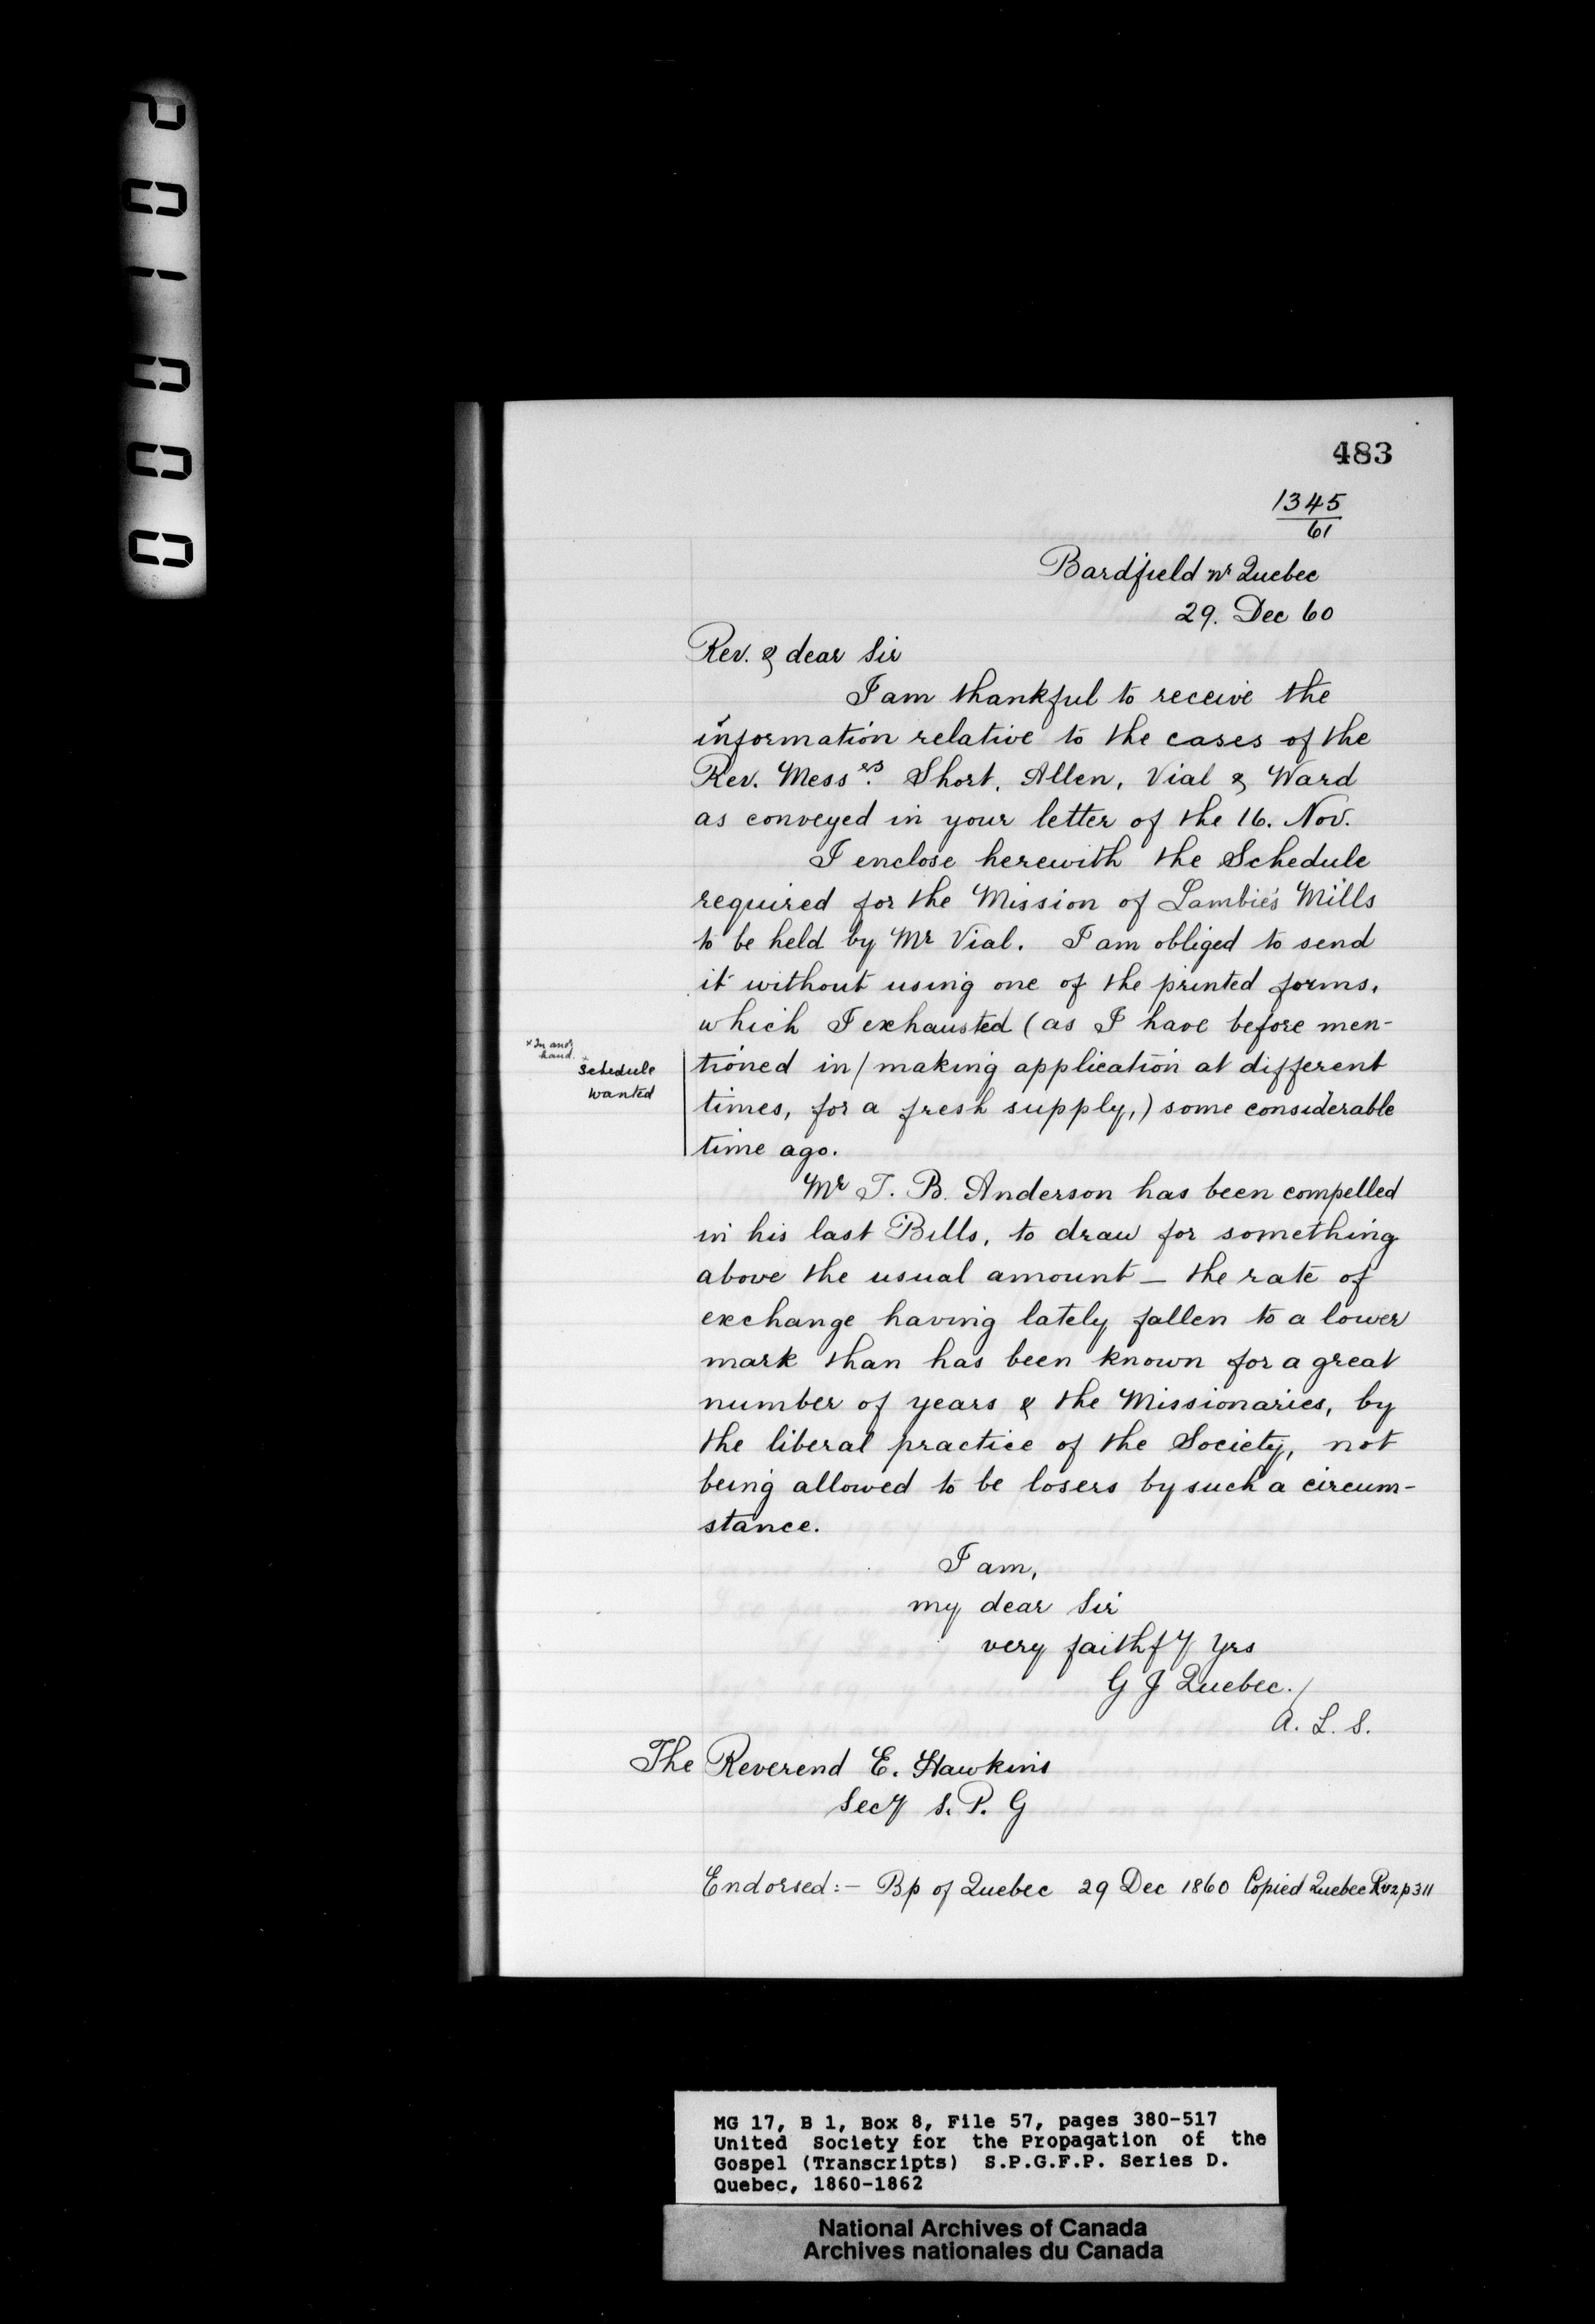 001002
483
1345
61
Bardfield nr Quebec
29. Dec 60
Rev. & dear Sir
I am thankful to receive the
information relative to the cases of the
Rev. Messers. Short, Allen, Vial & Ward
as conveyed in your letter of the 16. Nov.
I enclose herewith the Schedule
required for the Mission of Lambie's Mills
to be held by Mr Vial. I am obliged to send
it without using one of the printed forms,
which I exhausted (as I have before men-
x In anor
hand.
x Schedule
wanted
tioned in/making application at different
times, for a fresh supply,) some considerable
time ago.
Mr T. B. Anderson has been compelled
in his last Bills, to draw for something
above the usual amount — the rate of
exchange having lately fallen to a lower
mark than has been known for a great
number of years & the Missionaries, by
the liberal practice of the Society, not
being allowed to be losers by such a circum-
stance.
I am,
my dear Sir
very faithfy yrs
G J Quebec./
A. L. S.
The Reverend E. Hawkins
Secy S. P. G
Endorsed:— Bp of Quebec 29 Dec 1860 Copied Quebec R v 2 p 311
MG 17, B 1, Box 8, File 57, pages 380-517
United Society for the Propagation of the
Gospel (Transcripts) S.P.G.F.P. Series D.
Quebec, 1860-1862
National Archives of Canada
Archives nationales du Canada